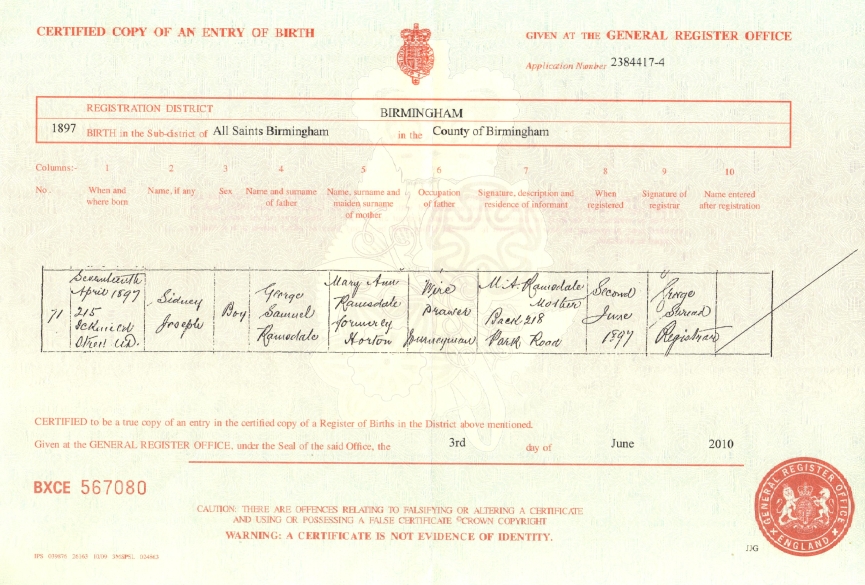 CERTIFIED COPY OF AN ENTRY OF BIRTH
GIVEN AT THE GENERAL REGISTER OFFICE
Application Number 2384417-4
REGISTRATION DISTRICT BIRMINGHAM
1897 BIRTH in the Sub-district of All Saints Birmingham in the County of Birmingham
Columns:- 1 2 3 4 5 6 7 8 9 10
No. When and where born Name, if any Sex Name and surname of father Name, surname and maiden surname of mother Occupation of father Signature, description and residence of informant When registered Signature of registrar Name entered after registration
71
Seventeenth
April 1897
215
Street
Sidney
Joseph
Boy
George
Samuel
Ramsdale
Mary Ann
Ramsdale
formerly
Horton
Wire
Drawer
Journeyman
M.A. Ramsdale
Mother
Back 218
Park Road
Second
June
1897
George
Registrar
CERTIFIED to be a true copy of an entry in the certified copy of a Register of Births in the District above mentioned.
Given at the GENERAL REGISTER OFFICE, under the Seal of the said Office, the 3rd day of June 2010
BXCE 567080
CAUTION: THERE ARE OFFENCES RELATING TO FALSIFYING OR ALTERING A CERTIFICATE
AND USING OR POSSESSING A FALSE CERTIFICATE ©CROWN COPYRIGHT
WARNING: A CERTIFICATE IS NOT EVIDENCE OF IDENTITY.
GENERAL REGISTER OFFICE
ENGLAND